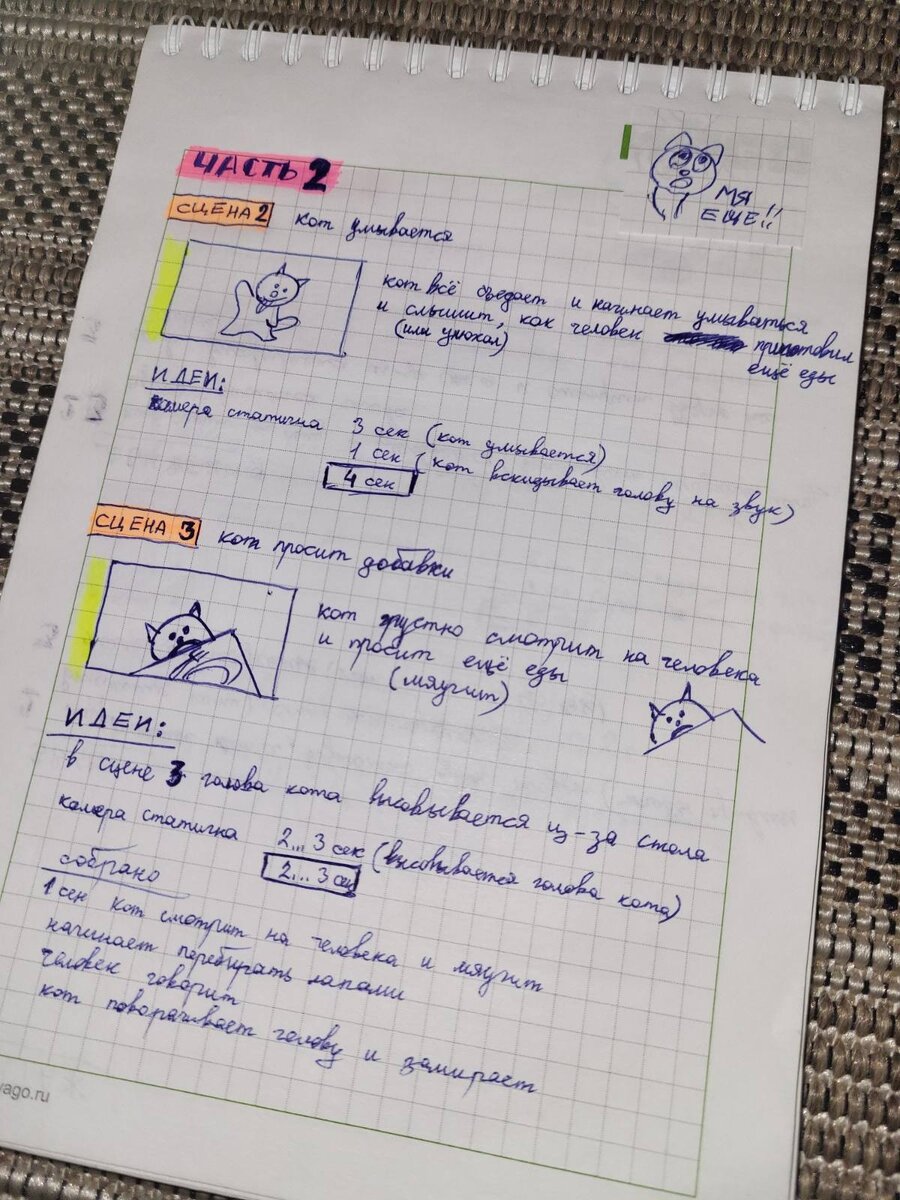 ЧАСТЬ 2
МЯ
ЕЩЕ!!
СЦЕНА 2 кот умывается
кот всё съедает и начинает умываться
и слышит, как человек приготовил
(или унюхал) ещё еды
ИДЕИ:
камера статична 3 сек (кот умывается)
1 сек (кот вскидывает голову на звук)
4 сек
СЦЕНА 3 кот просит добавки
кот грустно смотрит на человека
и просит ещё еды
(мяучит)
ИДЕИ:
в сцене 3 голова кота высовывается из-за стола
камера статична 2...3 сек (высовывается голова кота)
2...3 сек
собрано
1 сек кот смотрит на человека и мяучит
начинает перебирать лапами
человек говорит
кот поворачивает голову и замирает
vago.ru